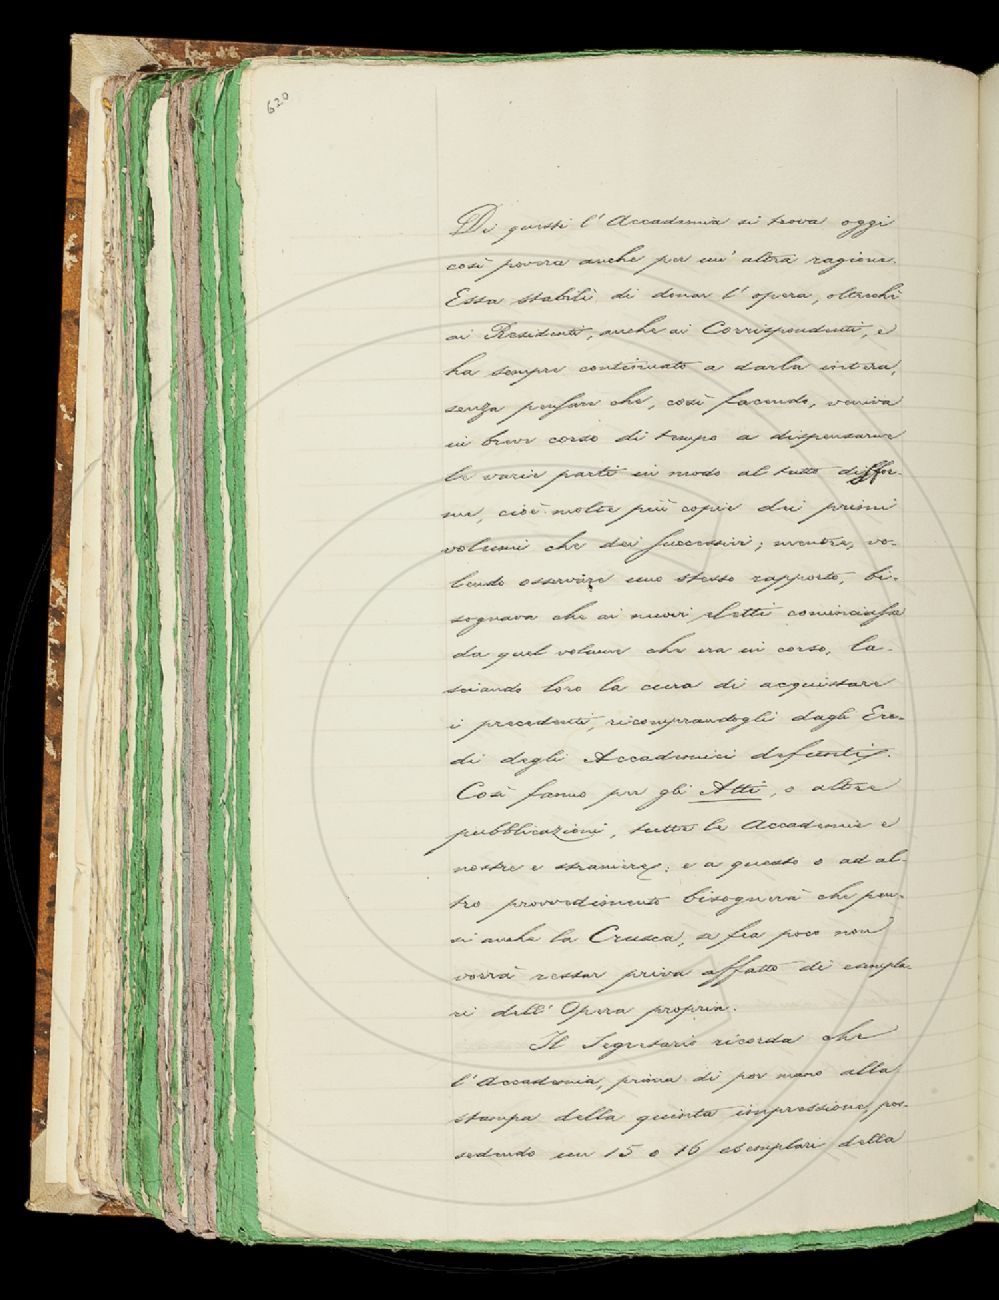 620
Di questi l'Accademia si trova oggi
così povera anche per un'altra ragione.
Essa stabilì di donar l'opera, oltrechè
ai Residenti, anche ai Corrispondenti, e
ha sempre continuato a darla intera,
senza pensare che, così facendo, veniva
in breve corso di tempo a dispensarne
le varie parti in modo al tutto diffor-
me, cioè molte più copie dei primi
volumi che dei successivi; mentre, vo-
lendo osservare uno stesso rapporto, bi-
sognava che ai nuovi eletti cominciasse
da quel volume che era in corso, la-
sciando loro la cura di acquistare
i precedenti, ricomprandogli dagli Ere-
di degli Accademici defunti.
Così fanno per gli Atti, o altre
pubblicazioni, tutte le Accademie e
nostre e straniere; e a questo o ad al-
tro provvedimento bisognerà che pen-
si anche la Crusca, se fra poco non
vorrà restar priva affatto di esempla-
ri dell'Opera propria.
Il Segretario ricorda che
l'Accademia, prima di por mano alla
stampa della quinta impressione, pos-
sedendo un 15 o 16 esemplari della